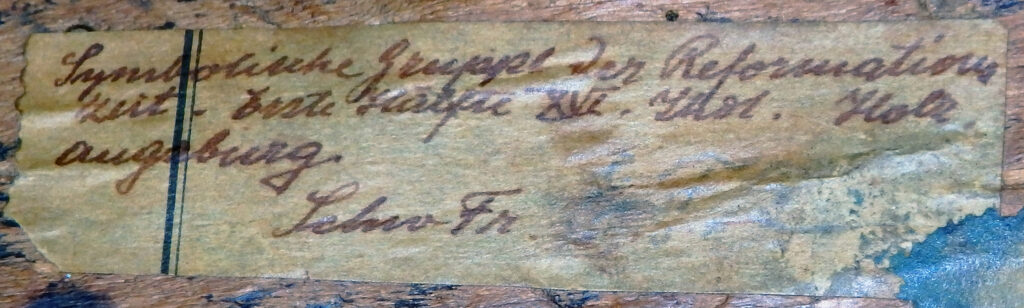 Symbolische Gruppe der Reformations
Zeit - Erste Hälfte XVI. Jhdt. Holz
Augsburg.
Schw Fr.